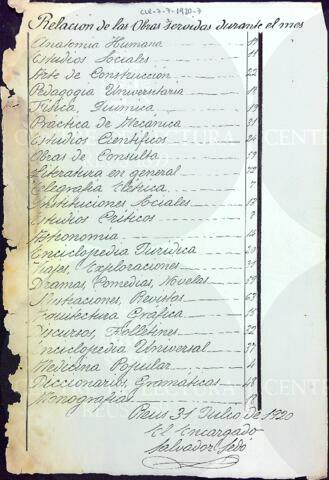 CUL-7-7-1920-7
Relación de las Obras Servidas durante el mes
Anatomia Humana
Estudios Sociales 11
Arte de Construcción 22
Pedagogia Universitaria
Física, Quimica 19
Práctica de Mecánica 31
Estudios Científicos 24
Obras de Consulta 51
Literatura en general
Telegrafía Elétrica 7
Constituciones Sociales 13
Estudios Criticos
Astronomia 14
Enciclopedia Juridica 20
Viajes, Exploraciones
Dramas Comedias, Novelas 59
Ilustraciones, Revistas 63
Arquitectura Gráfica 15
Discursos, Folletines 22
Enciclopedia Universal 37
Medicina Popular
Diccionarios, Gramáticas 48
Monografias
Reus 31 Julio de 1920
El Encargado
Salvador Sedó